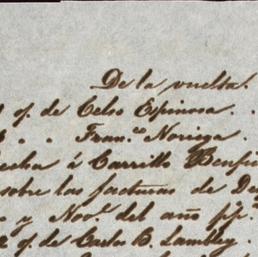 De la vuelta.
of. de Celso Espinosa. .
. . Fran.co Noriega. .
echa á Carrillo
sobre las facturas de
y Nov.e del año pp.
of. de Carlos B. Lambley.